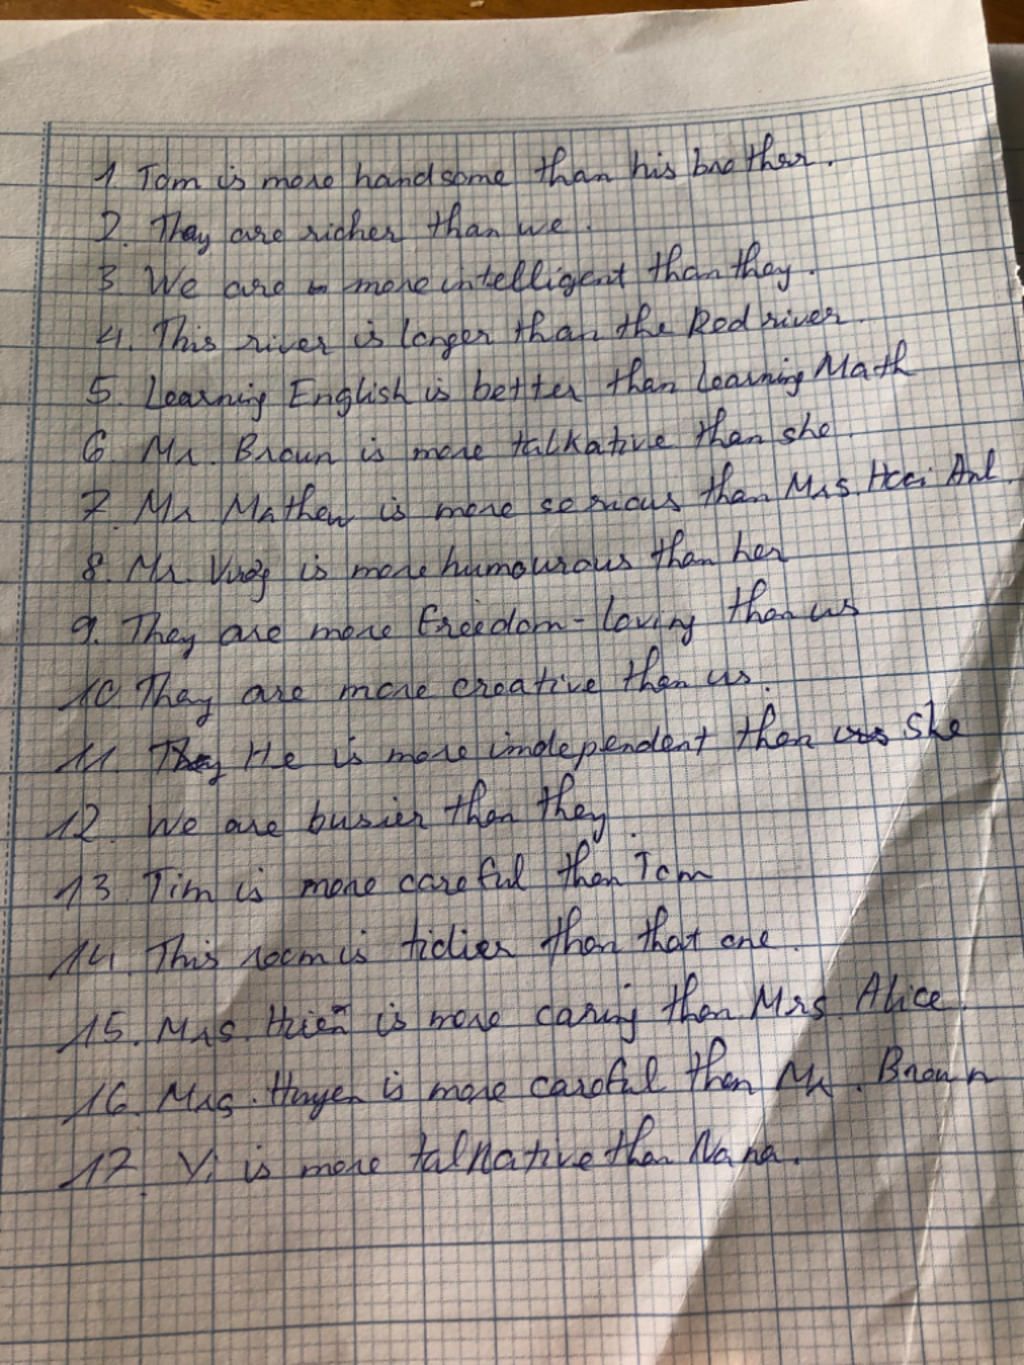 1. Tom is more handsome than his brother.
2. They are richer than we.
3. We are more intelligent than they.
4. This river is longer than the Red river.
5. Learning English is better than learning Math
6. Mr. Brown is more talkative than she.
7. Mr Mathew is more serious than Mrs. Hoai Anh.
8. Mr. is more humourous than her
9. They are more freedom-loving than us
10. They are more creative than us.
11. They He is more independent than us she
12. We are busier than they.
13. Tim is more careful than Tom
14. This room is tidier than that one.
15. Mrs. Hiền is more caring than Mrs. Alice.
16. Mrs. Huyen is more careful than Mr. Brown
17. Vi is more talkative than Nana.